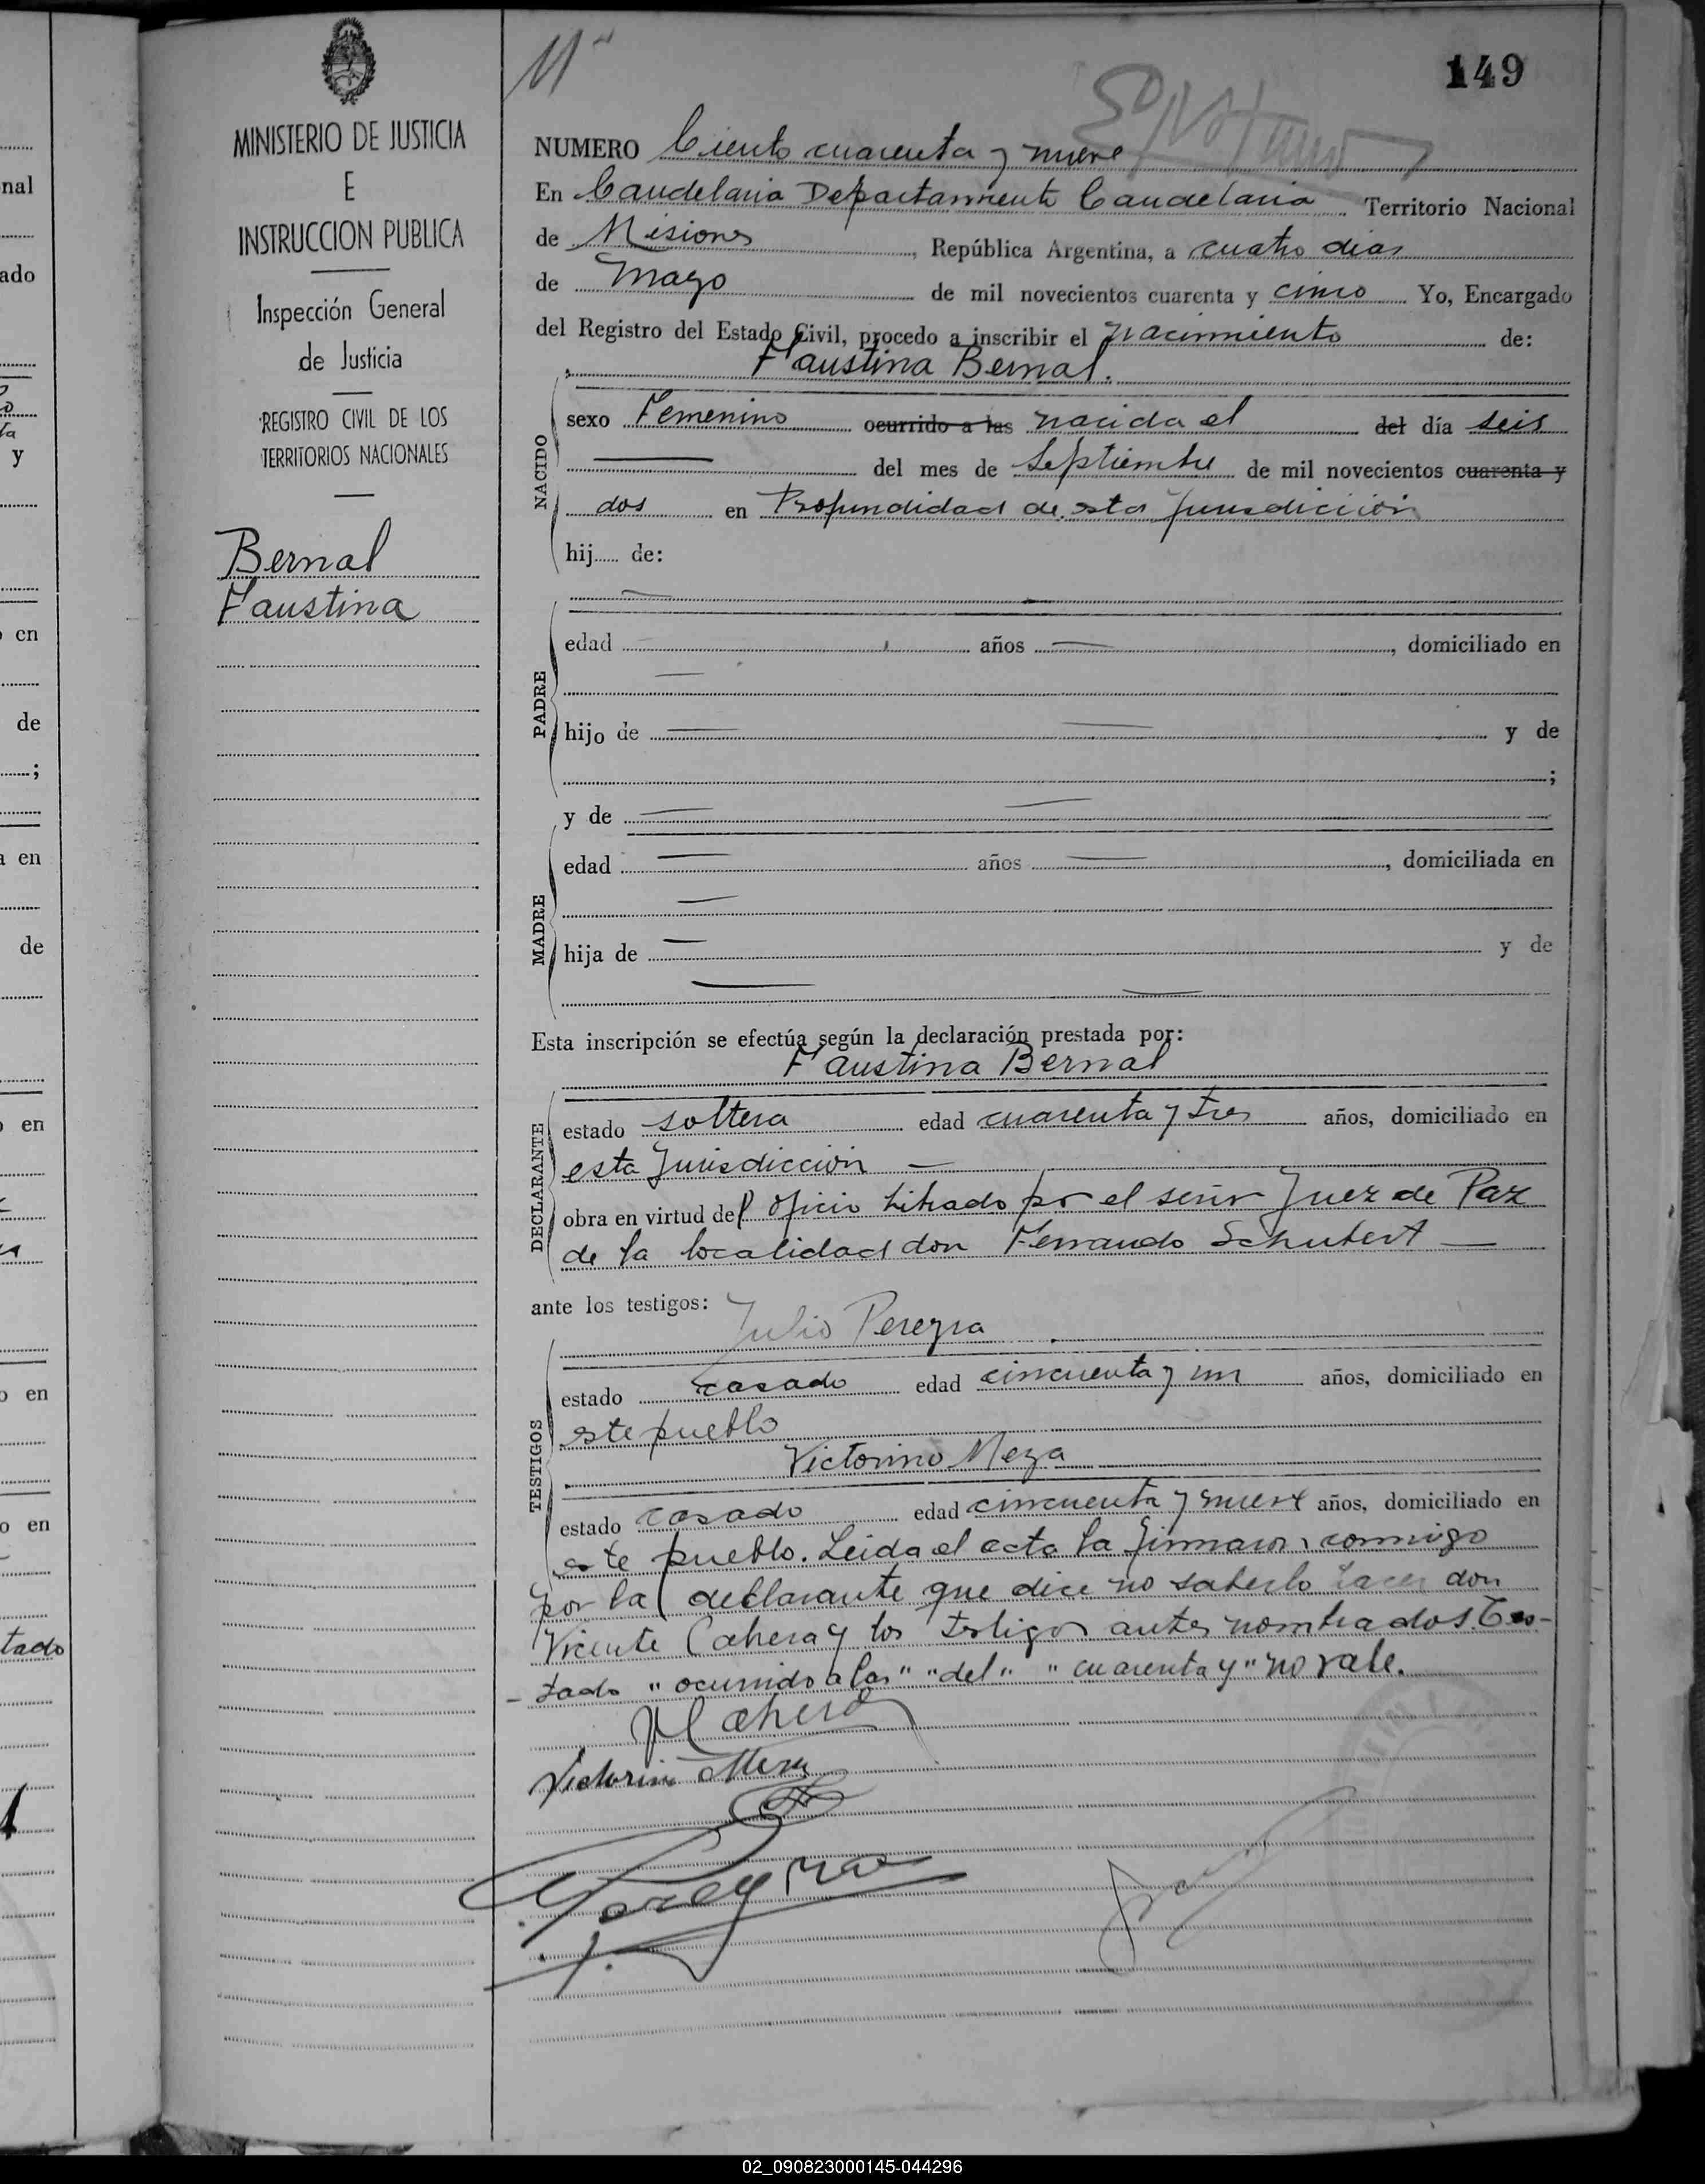 149
MINISTERIO DE JUSTICIA
E
INSTRUCCION PUBLICA
Inspección General
de Justicia
REGISTRO CIVIL DE LOS
TERRITORIOS NACIONALES
Bernal
Faustina
NUMERO Ciento cuarenta y nueve
En Candelaria Departamento Candelaria Territorio Nacional
de Misiones, República Argentina, a cuatro dias
de Mayo de mil novecientos cuarenta y cinco Yo, Encargado
del Registro del Estado Civil, procedo a inscribir el nacimiento de:
Faustina Bernal.
NACIDO
sexo Femenino ocurrido a las nacida el del día seis
del mes de Septiembre de mil novecientos cuarenta y
dos en Profundidad de esta Jurisdicción
hij de:
PADRE
edad años, domiciliado en
hijo de y de
;
y de
MADRE
edad años, domiciliada en
hija de y de
Esta inscripción se efectúa según la declaración prestada por:
Faustina Bernal
DECLARANTE
estado soltera edad cuarenta y tres años, domiciliado en
esta Jurisdicción
obra en virtud del oficio librado por el señor Juez de Paz
de la localidad don Fernando Schubert
ante los testigos:
Julio Pereyra
TESTIGOS
estado casado edad cincuenta y un años, domiciliado en
este pueblo
Victorino Meza
estado casado edad cincuenta y nueve años, domiciliado en
este pueblo. Leida el acta la firmaron conmigo
por la declarante que dice no saberlo hacer don
Vicente Cabera y los testigos antes nombrados. Tes-
-tado "ocurrido a las" "del" "cuarenta y" no vale.
Cabera
Victorino Meza
Pereyra
nal
ado
y
en
de
;
a en
de
en
en
en
tado
02_090823000145-044296